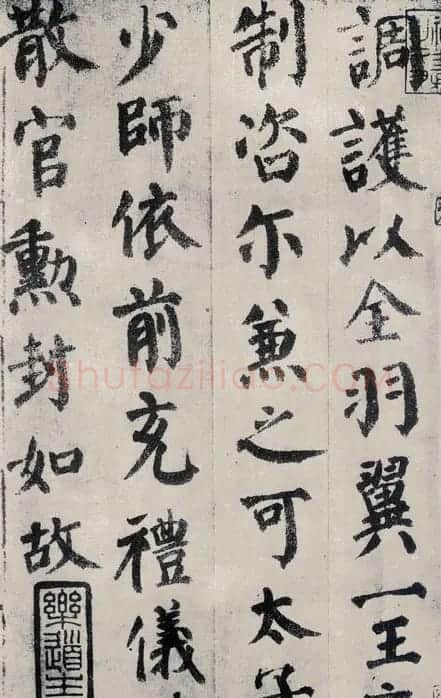 調護以全羽翼一王
制咨尔兼之可太子
少師依前充禮儀
散官勲封如故
樂道主
shufaziliao.com